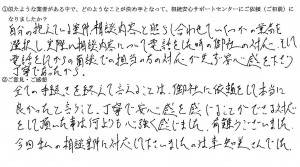 ①似たような業者がある中で、どのようなことが決め手となって、相続安心サポートセンターにご依頼(ご初回)に
なりましたか?
自分の抱えている案件、相談内容と照らし合わせていくつかの業者を
選択し、実際の相談内容について電話をした時の御社の対応、そして
電話をしてからの面接での担当の方の対応が、安心感をもて
丁寧であったから。
②ご意見・ご感想
全ての手続きを終えて言えることは、御社に依頼して本当に
良かったと言うこと。丁寧で安心感を感じることができる対応
をして頂いた事は何よりも心強く感じました。有難うございました。
今回私の相談案件に対応して下さいました